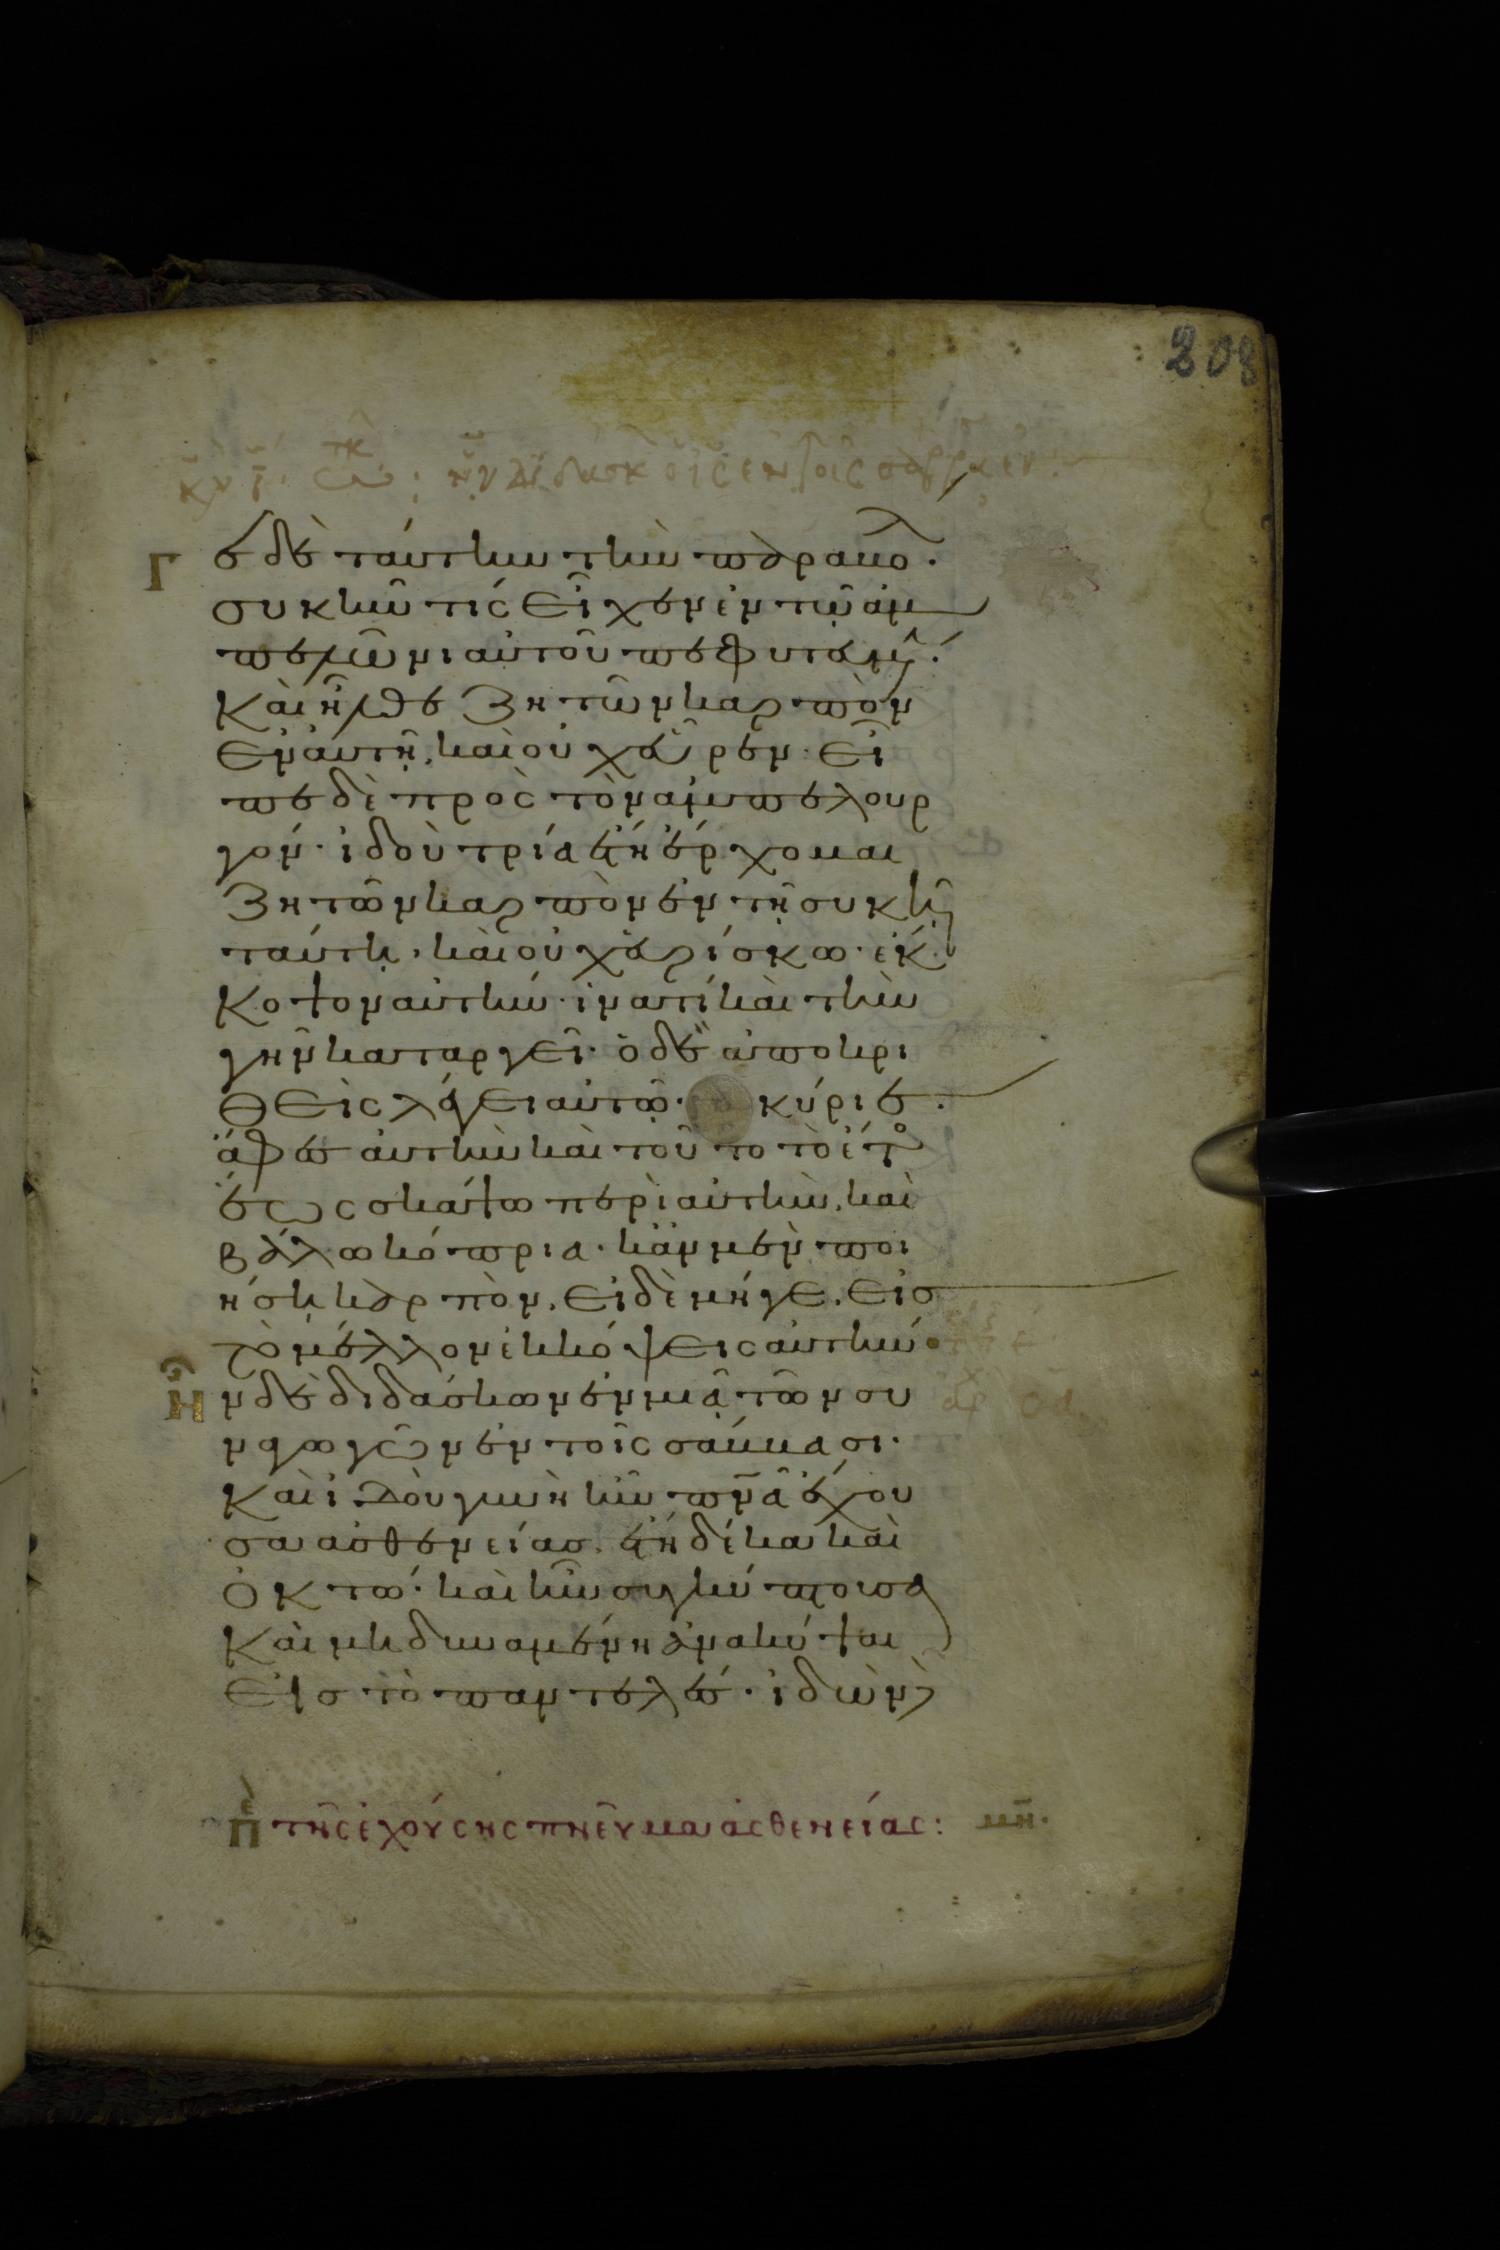 208
ε δὲ ταύτην τὴν παραβο.
συκῆν τίς εἶχεν ἐν τῷ ἀμ
πελῶνι αὐτοῦ πεφυτευμ.
Καὶ ἦλθε ζητῶν καρπὸν
ἐν αὐτῆ, καὶ οὐχ εὗρεν. εἶ
πε δὲ πρὸς τὸν ἀμπελουρ
γόν. ἰδοὺ τρία ἔτη ἔρχομαι
ζητῶν καρπὸν ἐν τῆ συκῆ
ταύτη, καὶ οὐχ εὑρίσκω. ἔκ
κοψον αὐτήν. ἱνατί καὶ τὴν
γῆν καταργεῖ. ὁ δὲ ἀποκρι
θεὶς λέγει αὐτῷ. κύριε.
ἄφες αὐτὴν καὶ τοῦτο τὸ ἔτος
ἕως σκάψω περὶ αὐτὴν, καὶ
βάλω κόπρια. κἂν μὲν ποι
ήση καρπὸν, εἰ δὲ μήγε, εἰς
τὸ μέλλον ἐκκόψεις αὐτήν
Ἦν δὲ διδάσκων ἐν μιᾷ τῶν συ
ναγωγῶν ἐν τοῖς σάββασι.
Καὶ ἰδοὺ γυνὴ ἦν πνα ἔχου
σα ἀσθενείας, ἔτη δέκα καὶ
ὀκτώ. καὶ ἦν συγκύπτουσα
Καὶ μὴ δυναμένη ἀνακύψαι
εἰς τὸ παντελές. ἰδὼν
Πε τῆς ἐχούσης πνεῦμα ἀσθενείας: μη.